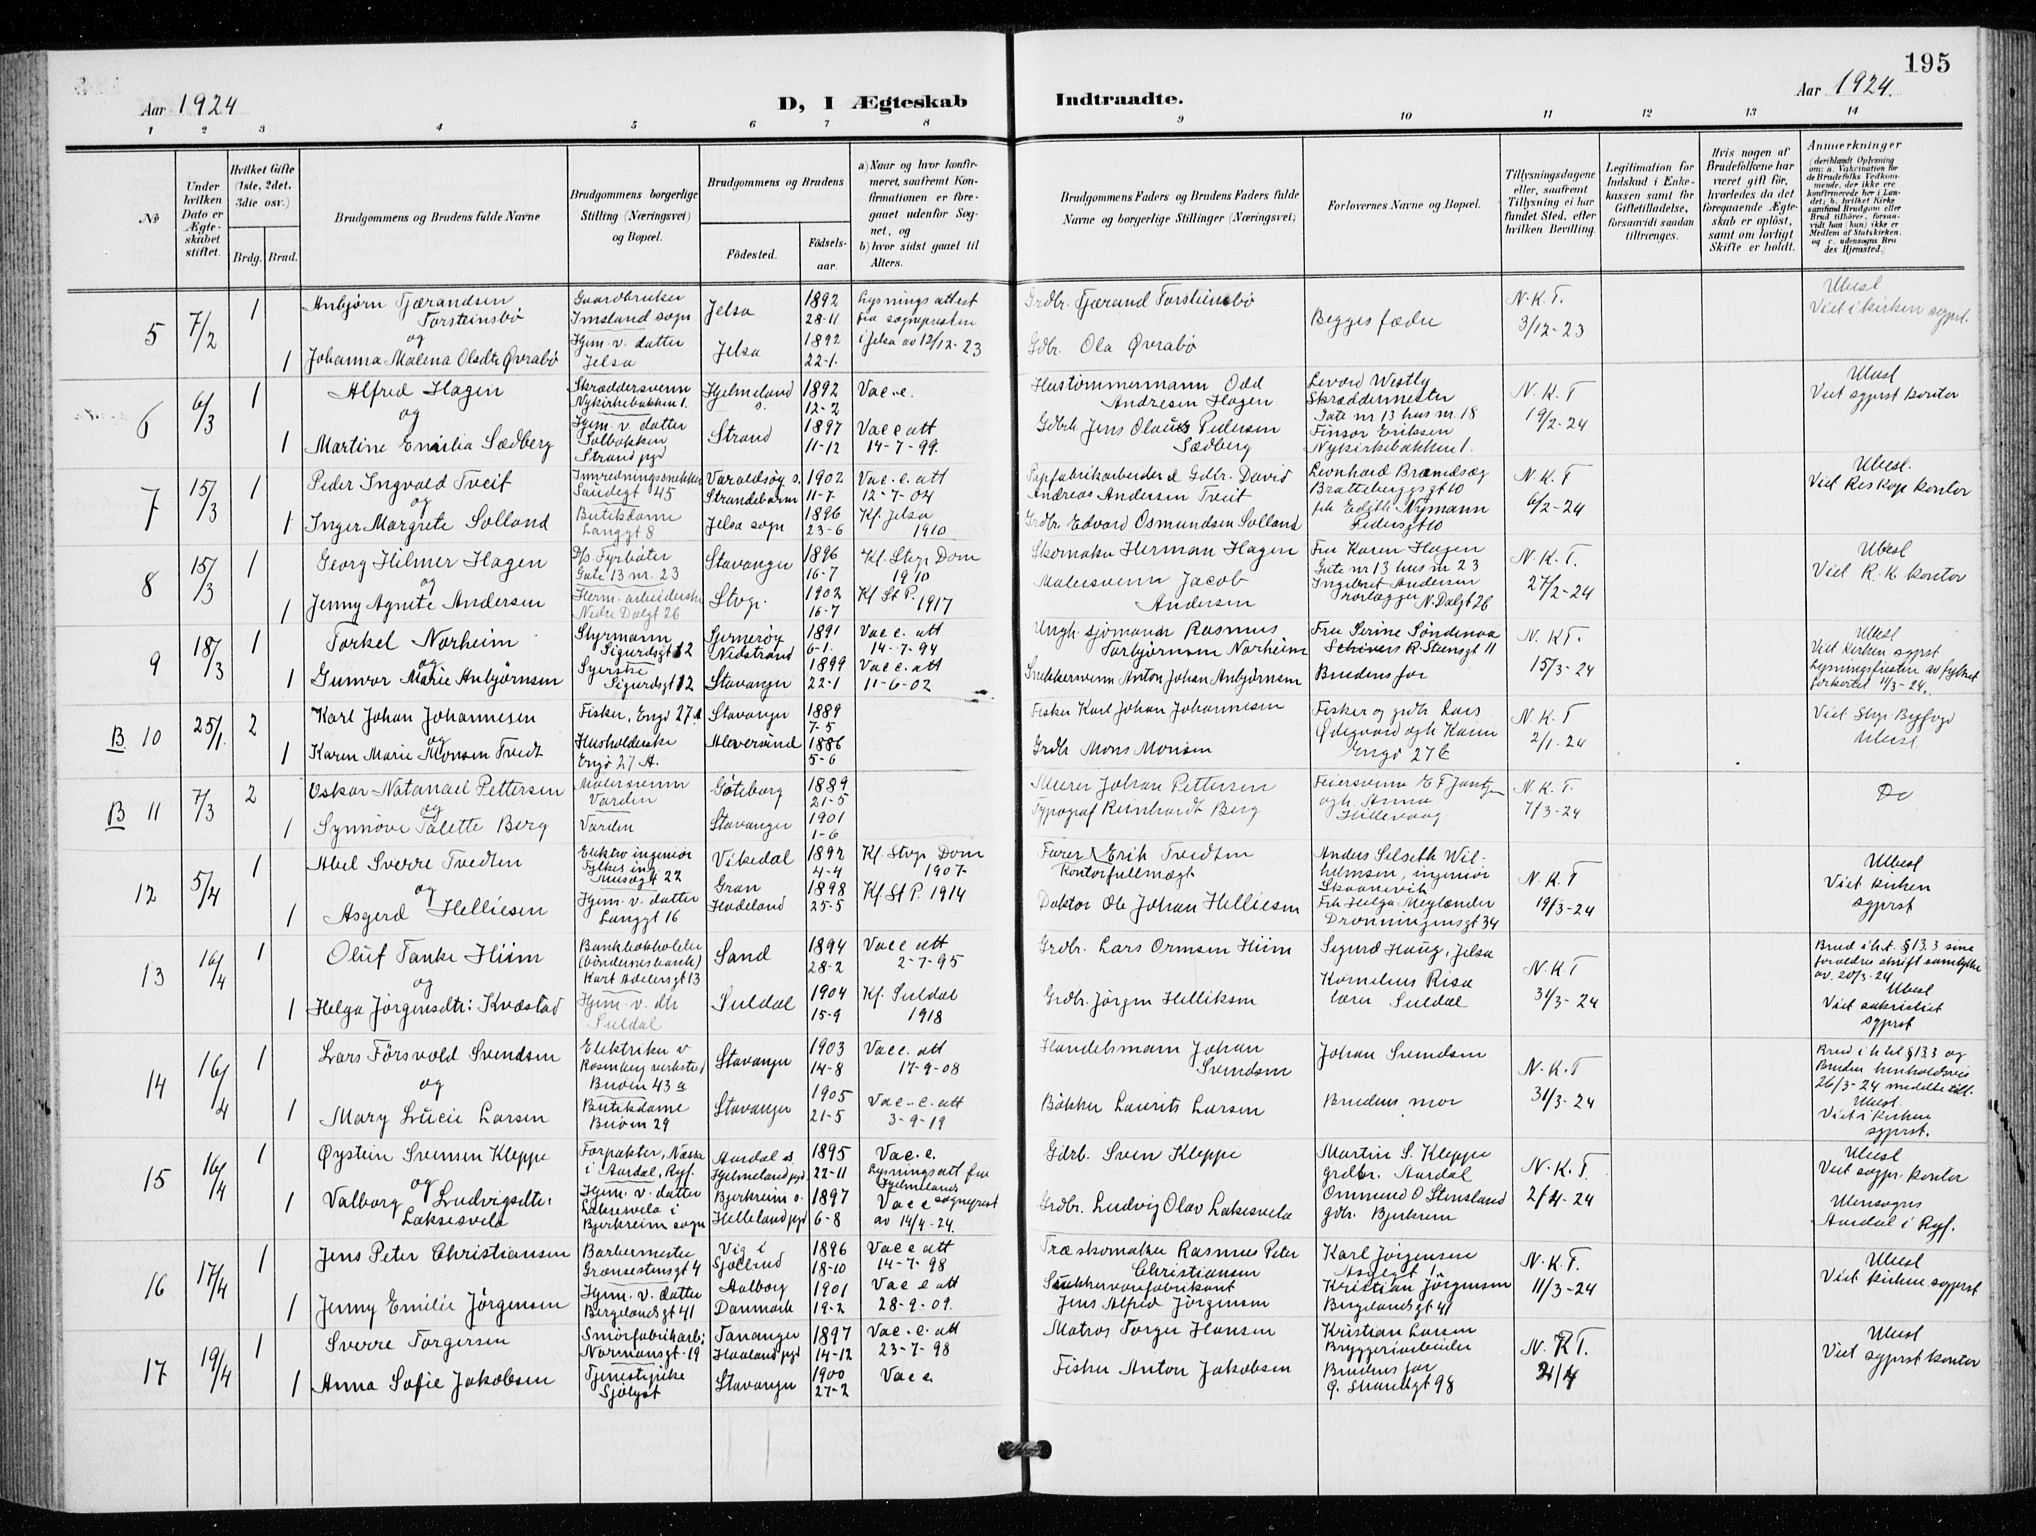 195
Aar 1924
D, I Ægteskab
Indtraadte.
Aar 1924.
1 2 3 4 5 6 7 8 9 10 11 12 13 14
No
Under hvilken Dato er Ægteskabet stiftet.
Hvilket Gifte (1ste, 2det. 3die osv.)
Brdg. Brud.
Brudgommens og Brudens fulde Navne
Brudgommens borgerlige Stilling (Næringsvei) og Bopæl.
Brudgommens og Brudens
Födested.
Födselsaar.
a) Naar og hvor konfirmeret, saafremt Konfirmationen er foregaaet udenfor Sognet, og
b) hvor sidst gaaet til Alters.
Brudgommens Faders og Brudens Faders fulde Navne og borgerlige Stillinger (Næringsvei)
Forlovernes Navne og Bopæl.
Tillysningsdagene eller, saafremt Tillysning ei har fundet Sted, efter hvilken Bevilling.
Legitimation for Indskud i Enkekassen samt for Giftetilladelse, forsaavidt saadan tiltrænges.
Hvis nogen af Brudefolkene har været gift för, hvorledes da det foregaaende Ægteskab er oplöst, samt om lovligt Skifte er holdt.
Anmerkninger
(deriblandt Oplysning om: a. Vakcination for de Brudefolks Vedkommende, der ikke ere konfirmerede her i Landet; b. hvilket Kirkesamfund Brudgom eller Brud tilhörer, forsaavidt han (hun) ikke er Medlem af Statskirken. og c. udensogns Brudes Hjemsted.)
5 7/2 1 Anbjørn Tjærandsen Torsteinsbø
Gaardbruker Imsland sogn
Jelsa 1892 28-11
Lysningsattest fra sognepresten i Jelsa av 12/12-23
Grdbr. Tjærand Torsteinsbø
Begges fædre
N.K.T. 3/12-23
Ubesl Viet i kirken sogprst.
og
1 Johanna Malena Olsdtr Øvrabø
Hjem. v. datter Jelsa
Jelsa 1892 22-1.
Gdbr. Ola Øvrabø
6 6/3 1 Alfred Hagen
Skræddersvenn Nykirkebakken 1.
Hjelmeland s. 1892 12-2
Vac.e.
Hustømmermann Odd Andresen Hagen
Levord Westly Skræddermester Gate nr 13 hus nr. 18
N.K.T 19/2-24
Ubesl Viet sgprst kontor
og
1 Martine Emilia Sædberg
Hjem. v. datter Solbakken Strand pgd
Strand 1897 11-12
Vacc att 14-7-99.
Gdbrk Jens Olaus Pedersen Sædberg
Finsor Eriksen Nykirkebakken 1.
7 15/3 1 Peder Ingvald Tveit
Innredningssnekker Sandsgt 45
Varaldsøy s. Strandebarm 1902 11-7
Vac.e. att 12-7-04
Papfabrikarbeider & Gdbr. David Andreas Andersen Tveit
Leonhard Brandsæg Bratteberggt 10
N.K.T 6/2-24
Ubesl. Viet Res Kap kontor
og
1 Inger Margrete Solland
Butikdame Langgt 8
Jelsa sogn 1896 23-6
Kf. Jelsa 1910
Grdbr. Edvard Osmundsen Solland
frk Edith Nymann Pedersgt 10
8 15/3 1 Georg Hilmer Hagen
D/s Fyrbøter Gate 13 nr. 23
Stavanger 1896 16-7
Kf. Stvgr Dom 1910
Skomaker Herman Hagen
Fru Karen Hagen Gate nr 13 hus nr 23
N.K.T. 27/2-24
Ubesl Viet R.K kontor
og
1 Jenny Agnete Andersen
Herm. arbeiderske Nedre Dalgt 26
Stvgr. 1902 16-7
Kf St P. 1917
Malersvenn Jacob Andersen
Ingebret Andersen rørlægger N. Dalgt 26
9 18/3 1 Torkel Norheim
Styrmann Sigurdsgt 12
Sjernerøy Nedstrand 1891 6-1.
Vac e. att 14-7-94
Ungk. sjømann Rasmus Torbjørnsen Norheim
Fru Serine Søndenaa R. Steensgt 11
N.KT. 15/3-24
Ubesl Viet Kirken sgprst Lysningsfristen av fylket forkortet 11/3-24.
og
1 Gunvor Marie Anbjørnsen
Syerske Sigurdsgt 12
Stavanger 1899 22-1
Vac e. att 11-6-02
Snekkersvenn Anton Johan Anbjørnsen
Brudens far
B 10 25/1. 2 Karl Johan Johannesen
Fisker, Engø 27 A
Stavanger 1889 7-5
Fisker Karl Johan Johannesen
Fisker og grdbr Lars Ødegaard og h. Karen Engø 27 C
N.K.T 2/1.24
Viet Stvgr Byfogd Ubesl
og
1 Karen Marie Monsen Tvedt
Husholderske Engø 27 A.
Alversund 1886 5-6
Grdbr Mons Monsen
B 11 7/3 2 Oskar Natanael Pettersen
Malersvenn Varden
Gøteborg 1889 21-5
Murer Johan Pettersen
Feiersvenn E F Jantzen og h. Anna Hillevaag
N.K.T. 7/3-24
Do
og
1 Synnøve Talette Berg
Varden
Stavanger 1901 1-6
Typograf Reinhardt Berg
12 5/4 1 Abel Sverre Tvedten
Elektroingeniør Fylkes ing Musegt 22
Vikedal 1892 4-4
Kf. Stvgr Dom 1907.
Furer Erik Tvedten Kontorfullmægt
Anders Selseth Wilhelmsen, ingeniør Skaanevik
N.K.T 19/3-24
Ubesl Viet kirken sgprst
og
1 Asgerd Helliesen
Hjem. v. datter Langgt 16
Gran Hadeland 1898 25-5
Kf St P. 1914
Doktor Ole Johan Helliesen
Frk Helga Meglænder Dronningensgt 34
13 16/4 1 Oluf Tanke Hiim
Bankbokholder (bøndernes bank) Kort Adelersgt 13
Sand 1894 28-2
Vac e att 2-7-95
Grdbr. Lars Ormsen Hiim
Sigurd Haug, Jelsa
N.K.T 31/3-24
Brud i h.t. § 13.3 sine foreldres skrift samtykke av. 20/3-24. Ubesl Viet sakristiet sgprst
og
1 Helga Jørgensdtr: Kvæstad
Hjem. v. dtr Suldal
Suldal 1904 15-9
Kf. Suldal 1918
Grdbr. Jørgen Helliksen
Kornelius Risa lærer Suldal
14 16/4 1 Lars Førsvold Svendsen
Elektriker v Rosenberg verksted Buøen 43 a
Stavanger 1903 14-8
Vac e. att 17-9-08
Handelsmann Johan Svendsen
Johan Svendsen
N.K.T 31/3-24
Brud i h.til § 13 3 og Bruden henholdsvis 26/3-24 meddelt till. Ubesl. Viet i kirken sgprst.
og
1 Mary Lucie Larsen
Butikdame Buøen 29
Stavanger 1905 21-5
Vac.e.att 3-9-19
Bøkker Laurits Larsen
Brudens mor
15 16/4 1 Øystein Svensen Kleppe
Forpakter, Næssa i Aardal, Ryf.
Aardal s. Hjelmeland pgd 1895 22-11
Vac.e. Lysningsatt fra Hjelmelands sogneprest av 14/4-24.
Gdrb. Sven Kleppe
Martin S. Kleppe grdbr. Aardal
N.K.T. 2/4-24
Ubesl Viet sogpr. kontor
og
1 Valborg Ludvigsdtr: Laksesvela
Hjem. v. datter Laksesvela i Bjerkreim sogn
Bjerkreim s. Helleland pgd 1897 6-8
Vac e
Grdbr. Ludvig Olav Laksesvela
Ommund O Stensland gdbr. Bjerkrem
Utensogns Aardal i Ryf.
16 17/4 1 Jens Peter Christiansen
Barbermester Grønsestensgt 4
Vig i Sjælland 1896 18-10
Vac e att 14-7-98
Træskomaker Rasmus Peter Christiansen
Karl Jørgensen
N.K.T. 11/3-24
Ubesl Viet kirken sgprst
1 Jenny Emilie Jørgensen
Hjem. v. datter Bergelandsgt 41
Aalborg Danmark 1901 19-2
Vac e att 28-9-09.
Sukkervarefabrikant Jens Alfred Jørgensen
Kristian Jørgensen Bergelandsgt 41
17 19/4 1 Sverre Torgersen
Smørfabrikarb: Normansgt-19
Tananger Haaland pgd 1897 14-12
Vac.e. att 23-7-98
Matros Torger Hansen
Kristian Larsen Bryggeriarbeider
N.K.T. 31/4
Ubesl Viet sgprst kontor
1 Anna Sofie Jakobsen
Tjenestepike Sjølyst
Stavanger 1900 27-2
Vac e.
Fisker Anton Jakobsen
Brudens far Ø. Strandgt 98